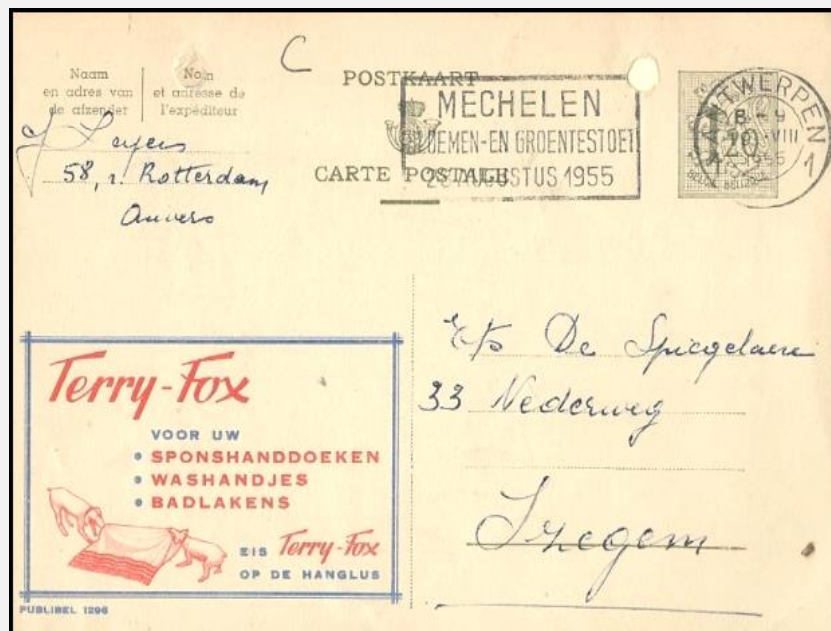 C
Naam
en adres van
de afzender
Nom
et adresse de
l'expéditeur
POSTKAART
CARTE POSTALE
MECHELEN
OEMEN-EN GROENTESTOET
AUGUSTUS 1955
ANTWERPEN
8-9
VIII
1955
1
1F20
BELGIË BELGIQUE
58, r. Rotterdam
Anvers
Ets De Spiegelaere
33 Nederweg
Izegem
Terry-Fox
VOOR UW
• SPONSHANDDOEKEN
• WASHANDJES
• BADLAKENS
EIS Terry-Fox
OP DE HANGLUS
PUBLIBEL 1296